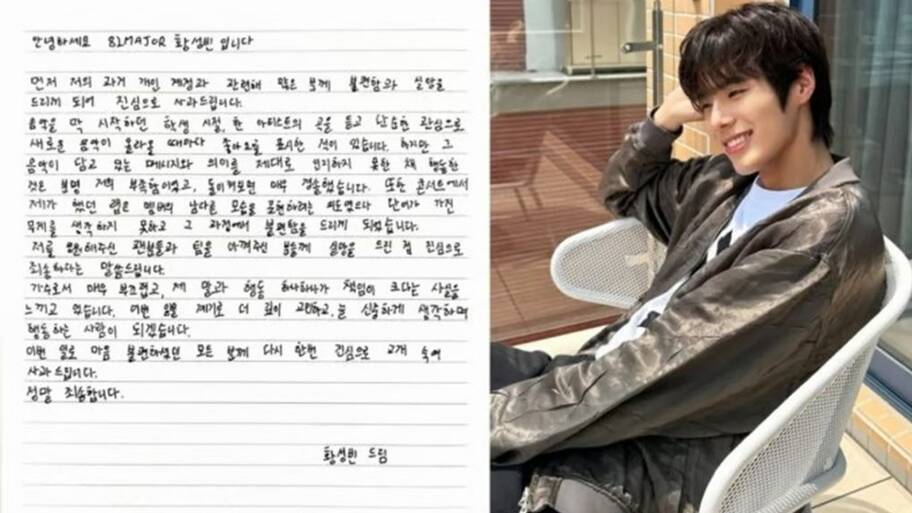 안녕하세요 82MAJOR 황성빈 입니다
먼저 저의 과거 개인 계정과 관련해 많은 분께 불편함과 실망을
드리게 되어 진심으로 사과드립니다.
음악을 막 시작하던 학생 시절, 한 아티스트의 곡을 듣고 단순한 관심으로,
새로운 음악이 올라올 때마다 좋아요를 표시한 것이 있습니다. 하지만 그
음악이 담고 있는 메시지와 의미를 제대로 인지하지 못한 채 행동한
것은 분명 저의 부족함이었고, 돌이켜보면 매우 경솔했습니다. 또한 콘서트에서
제가 했던 랩은 멤버의 남다른 모습을 표현하려는 의도였으나 단어가 가진
무게를 생각하지 못하고 그 과정에서 불편함을 드리게 되었습니다.
저를 응원해주신 팬분들과 팀을 아껴주신 분들께 실망을 드린 점 진심으로
죄송하다는 말씀드립니다.
가수로서 매우 부족했고, 제 말과 행동 하나하나가 책임이 크다는 사실을
느끼고 있습니다. 이번 일을 계기로 더 깊이 고민하고, 늘 신중하게 생각하며
행동하는 사람이 되겠습니다.
이번 일로 마음 불편하셨던 모든 분께 다시 한번 진심으로 고개 숙여
사과드립니다.
정말 죄송합니다.
황성빈 드림